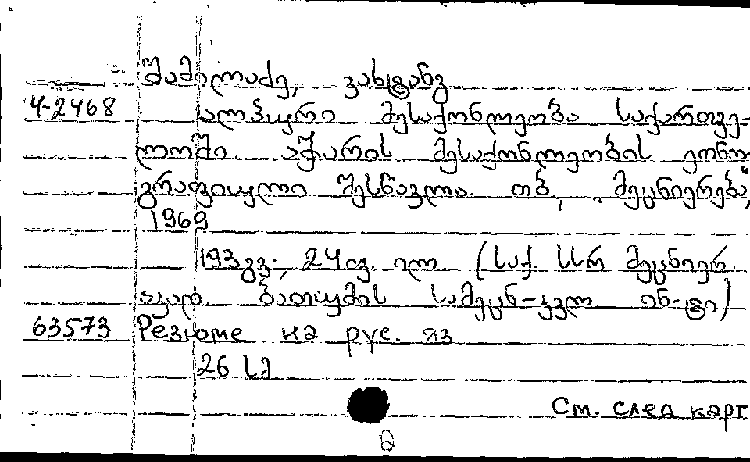 შამილაძე, ვახტანგ
4-2468 ალპური მესაქონლეობა საქართვე-
ლოში. აჭარის მესაქონლეობის ეთნო-
გრაფიული შესწავლა. თბ., „მეცნიერება",
1969
193 გვ.; 24 ილ. (საქ. სსრ მეცნიერ.
აკად. ბათუმის სამეცნ-კვლ. ინ-ტი)
63573 Резюме на рус. яз
26 სმ
См. след карт